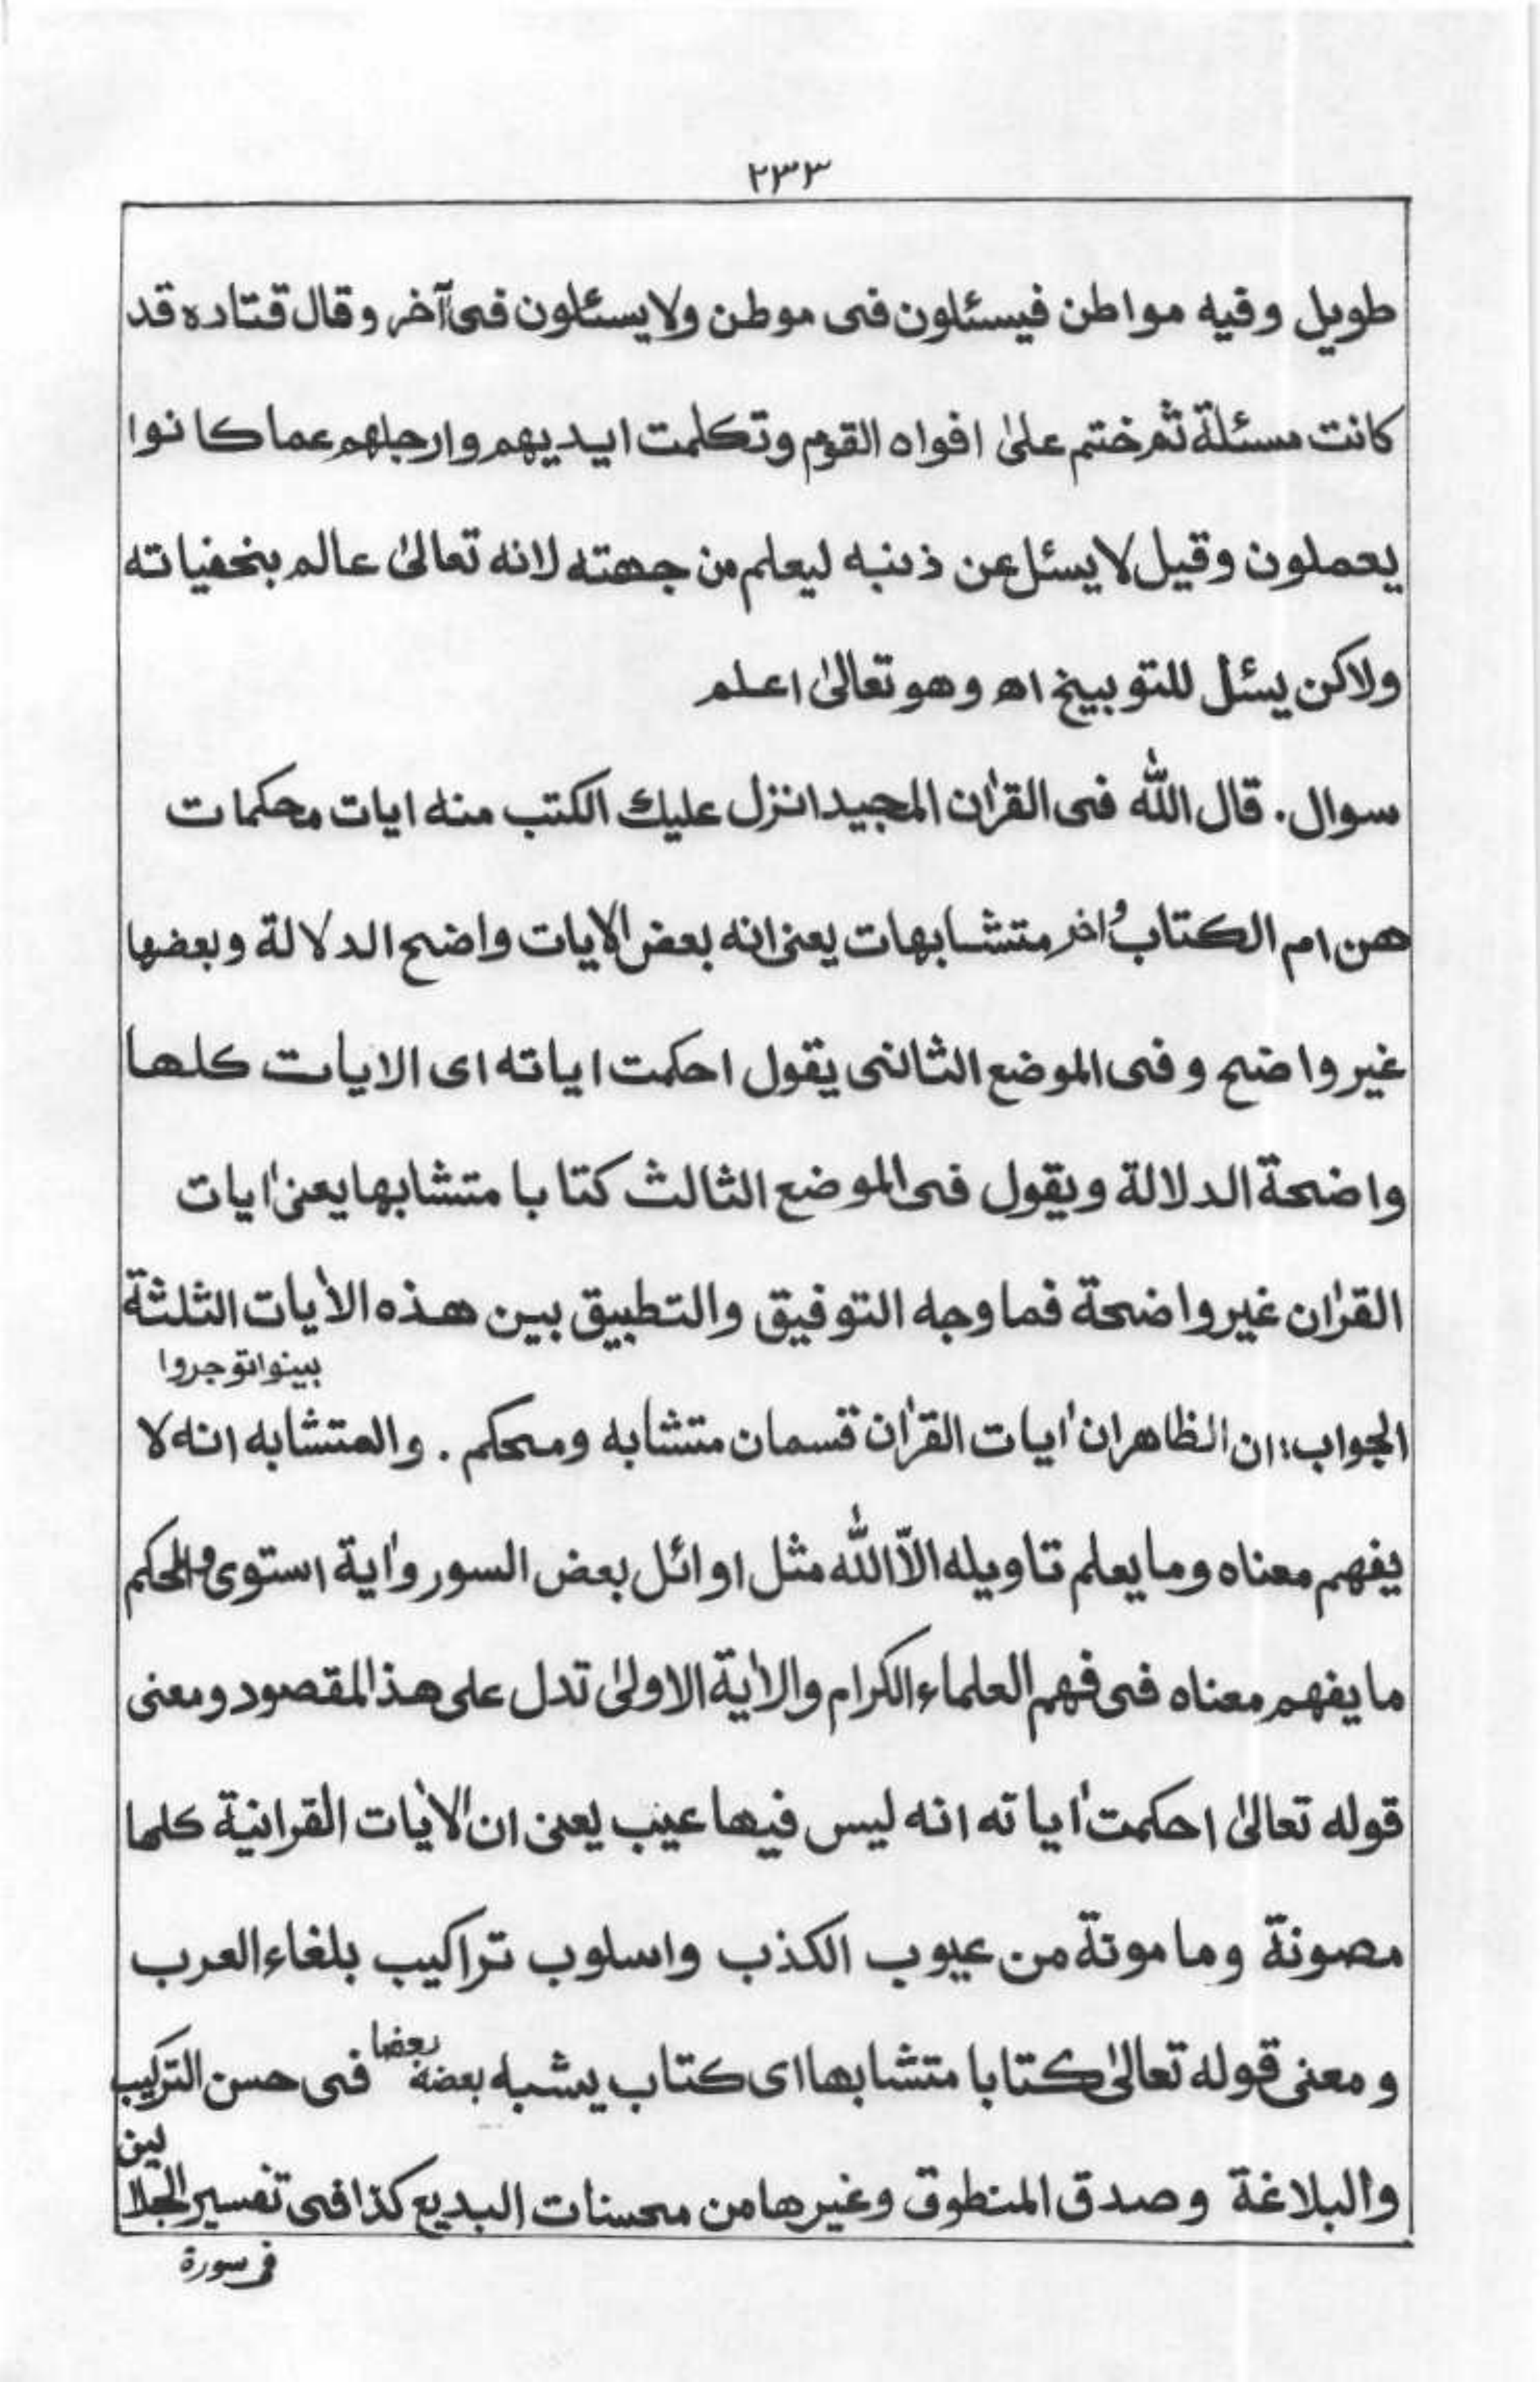 ۲۳۳
طويل وفيه مواطن فيسئلون فى موطن ولا يسئلون فى آخر وقال قتاده قد
كانت مسئلة ثم ختم علىٰ افواه القوم وتكلمت ايديهم وارجلهم عما كانوا
يعملون وقيل لا يسئل عن ذنبه ليعلم من جهته لانه تعالىٰ عالم بنخفياته
ولاكن يسئل للتوبيخ اه وهو تعالىٰ اعلم
سوال. قال الله فى القرٰان المجيد انزل عليك الكتب منه ايات محكمات
هن ام الكتاب وُاخر متشابهات يعنى انه بعض الايات واضح الدلالة وبعضها
غير واضح وفى الموضع الثانى يقول احكمت اياته اى الايات كلها
واضحة الدلالة ويقول فى الموضع الثالث كتابا متشابها يعنى اٰيات
القرٰان غير واضحة فما وجه التوفيق والتطبيق بين هذه الاٰيات الثلثة
بينوا توجروا
الجواب: ان الظاهر ان اٰيات القرٰان قسمان متشابه ومحكم. والمتشابه انه لا
يفهم معناه وما يعلم تاويله الاّ الله مثل اوائل بعض السور واٰية استوى والمحكم
ما يفهم معناه فى فهم العلماء الكرام والاٰية الاولىٰ تدل على هذ المقصود ومعنى
قوله تعالىٰ احكمت اٰياته انه ليس فيها عيب يعنى ان الاٰيات القرانية كلها
مصونة ومامونة من عيوب الكذب واسلوب تراكيب بلغاء العرب
ومعنى قوله تعالىٰ كتابا متشابها اى كتاب يشبه بعضه بعضا فى حسن التركيب
والبلاغة وصدق المنطوق وغيرها من محسنات البديع كذا فى تفسير الجلالين
فى سورة